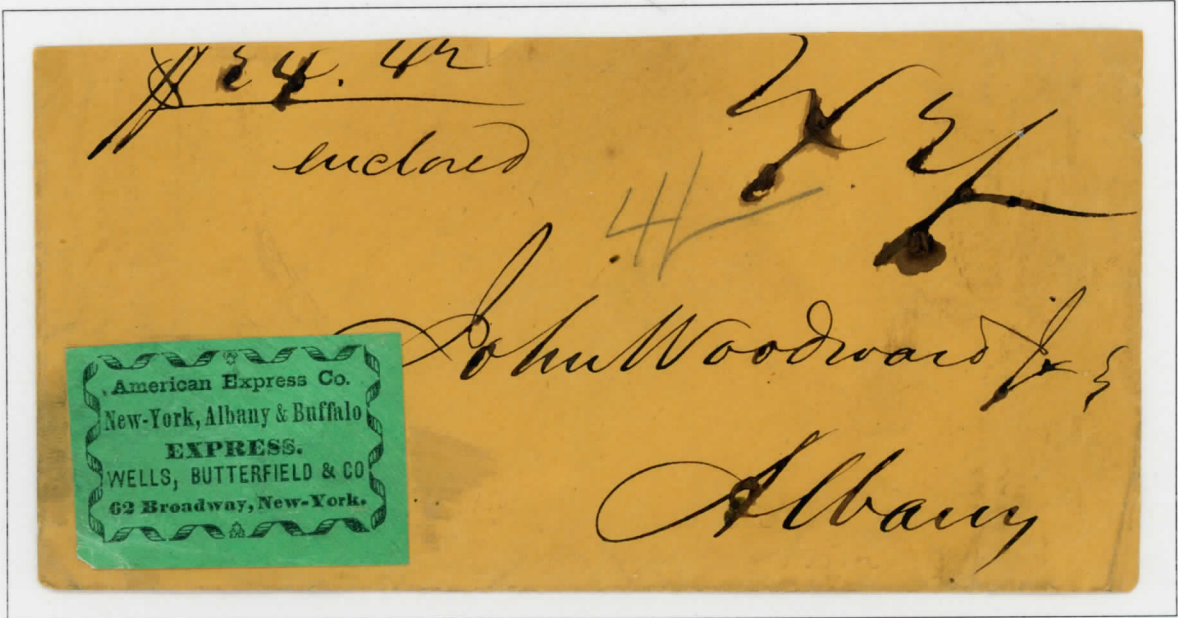 enclosed
John Woodward Jr
Albany
American Express Co.
New-York, Albany & Buffalo
EXPRESS.
WELLS, BUTTERFIELD & CO
62 Broadway, New-York.